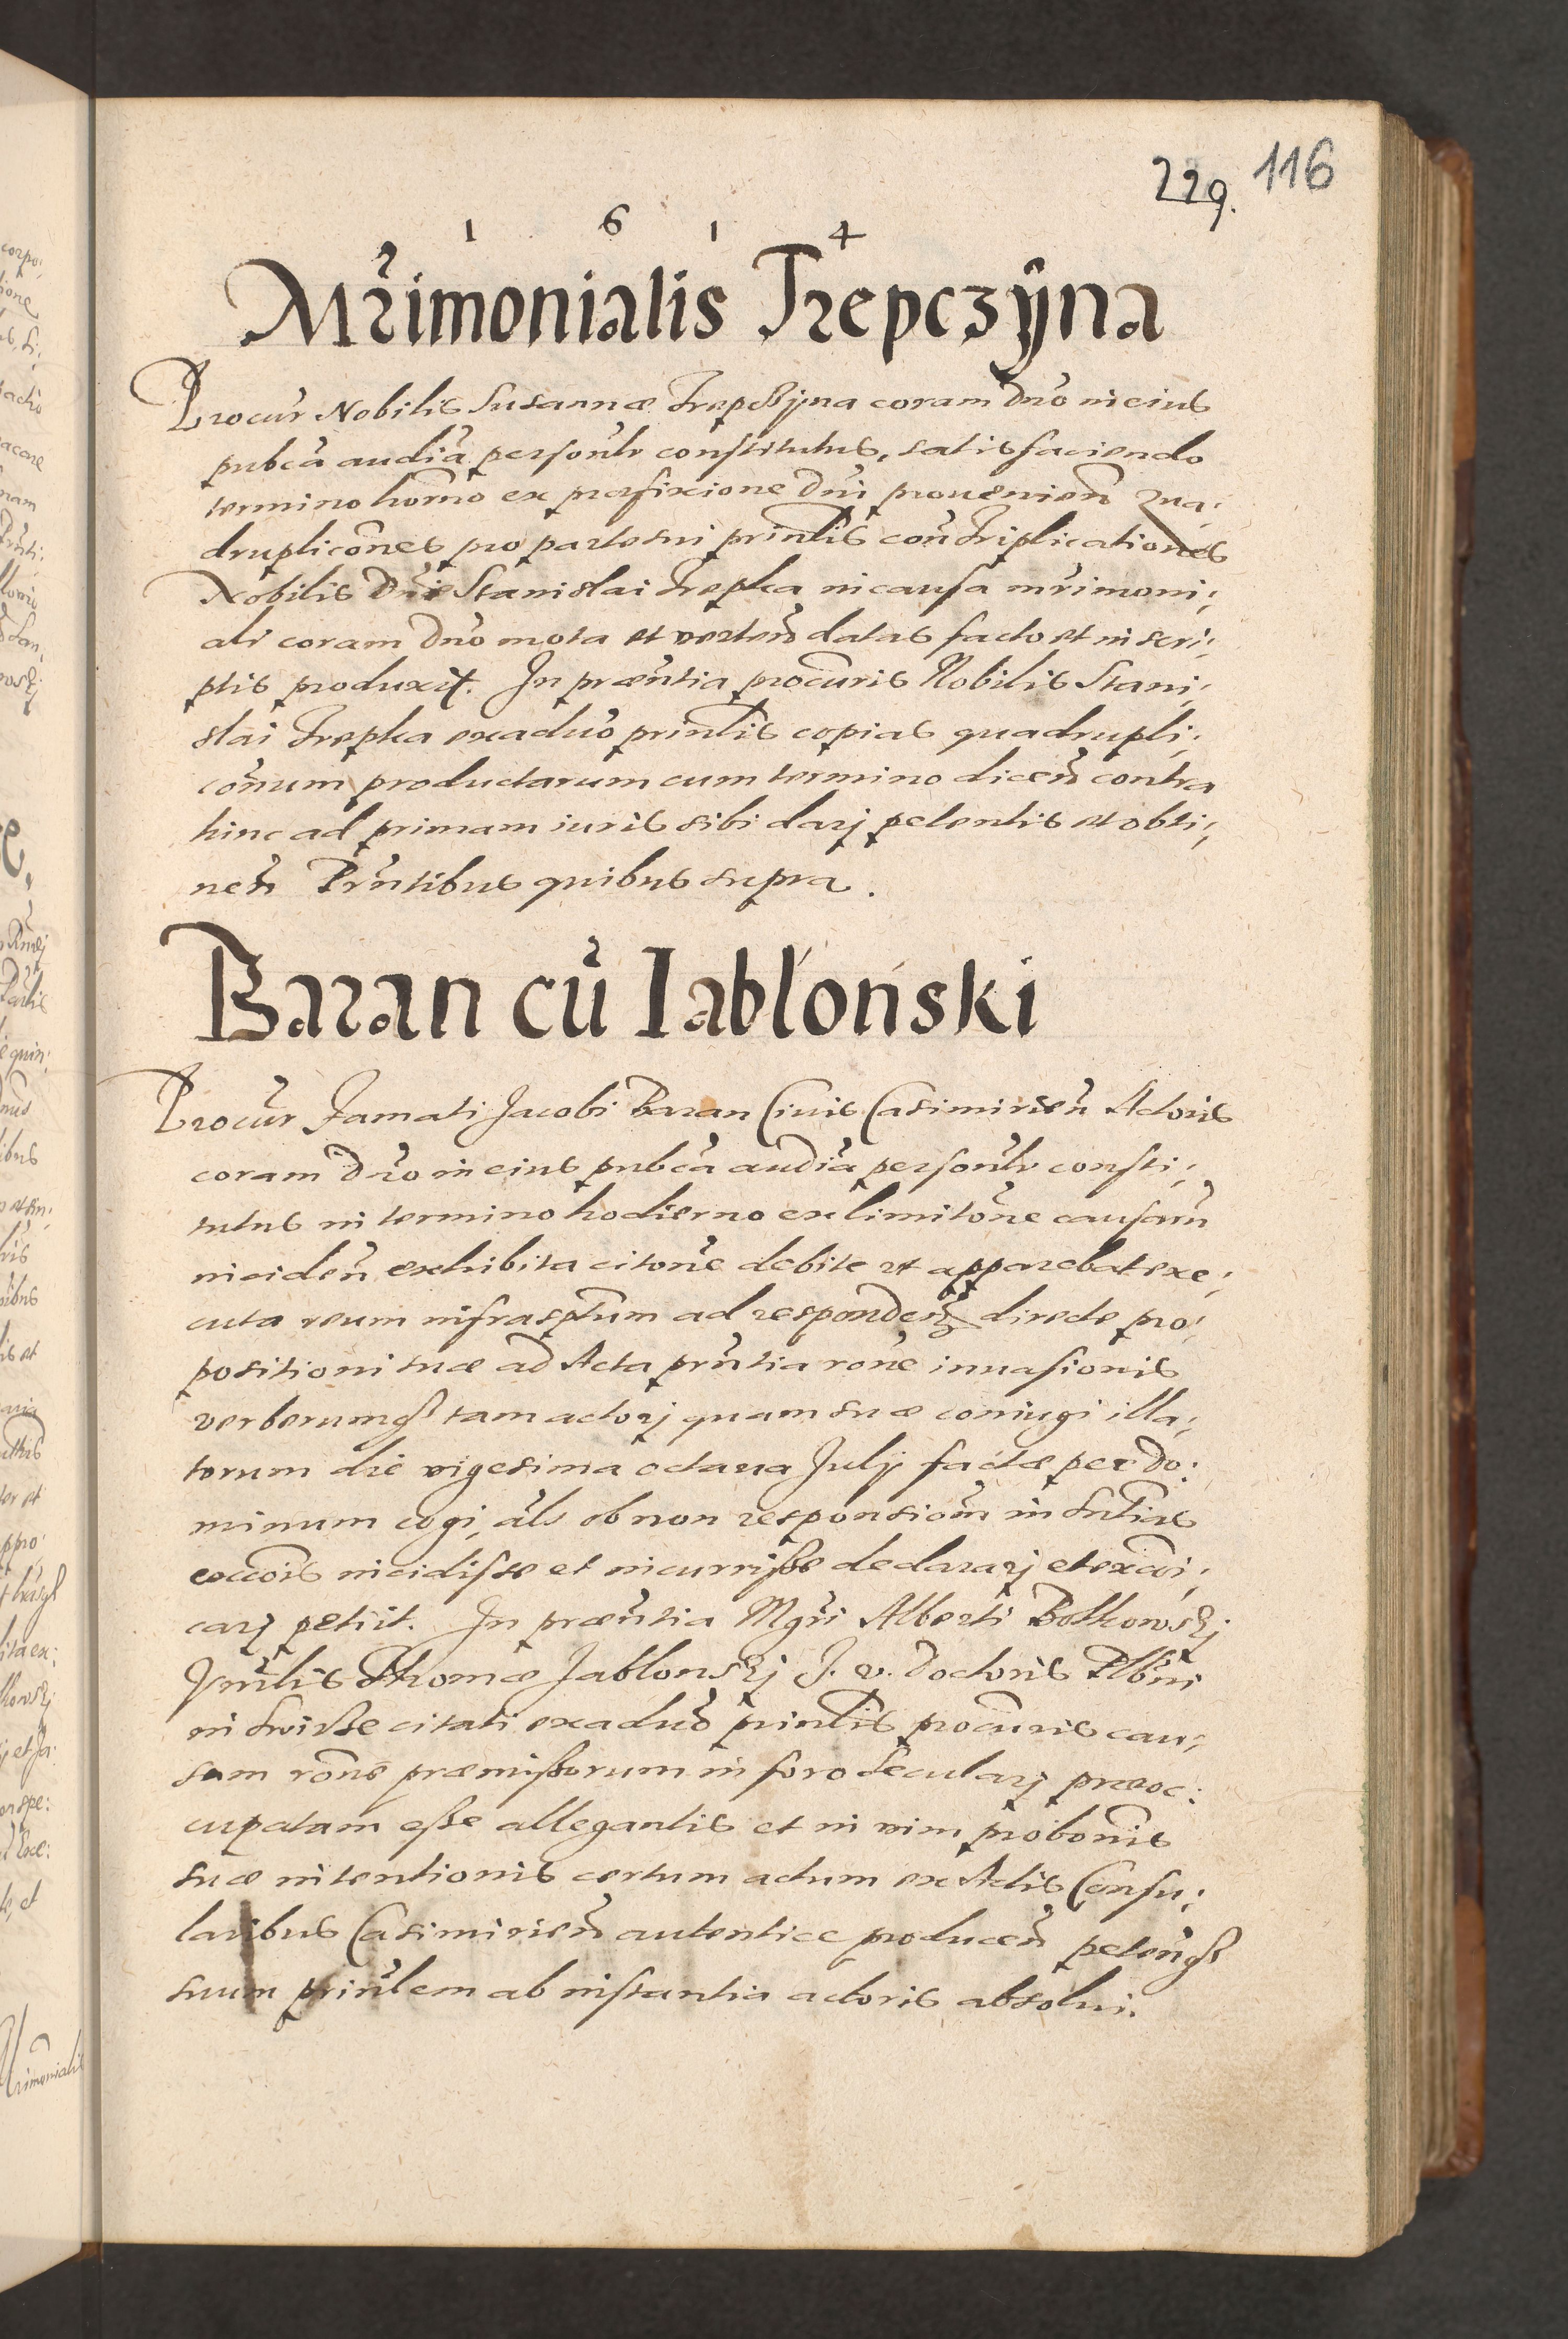 229. 116
1 6 1 4
Mrimonialis Trepczÿna
Procur Nobilis Susannæ Trepczÿna coram Dno in eius
pubca audia personlr constitutus, satisfaciendo
termino horno ex præfixione Dni provenien Qua:
druplicones pro parte sui prinlis con Triplicationes
Nobilis Dni Stanislai Trepka in causa mrimoni:
ali coram Dno mota et verten datas facto et in scri:
ptis produxit. In præntia procuris Nobilis Stani:
slai Trepka ex aduo prinlis copias quadrupli:
conum productarum cum termino dicen contra
hinc ad primam iuris sibi darj petentis et obti:
nen Prntibus quibus supra.
Baran cu Iabłoński
Procur Famati Jacobi Baran Civis Casimirien Actoris
coram Dno in eius pubca audia personlr consti:
tutus in termino hodierno ex limitone causam
inciden exhibita citone debite ut apparebat exe:
cuta reum infrasptum ad responden directe pro:
positioni suæ ad Acta prntia rone invasionis
verberumq tam actorj quam suæ coniugi illa:
torum die vigesima octava Julij factæ per Do:
minum cogi, als ob non responsiom in sntias
excois incidisse et incurrisse declararj et excoi:
carj petiit. In præntia Mgri Alberti Bolkowskj
Gnrlis Thomæ Jablonskj J. v. Doctoris Plbni
in citati ex aduo prinlis procuris cau:
sam rone præmissorum in foro secularj præoc:
cupatam esse allegantis et in vim probonis
suæ intentionis certum actum ex Actis Consu:
laribus Casimirien autentice producen petenq
suum prinlem ab instantia actoris absolvi.